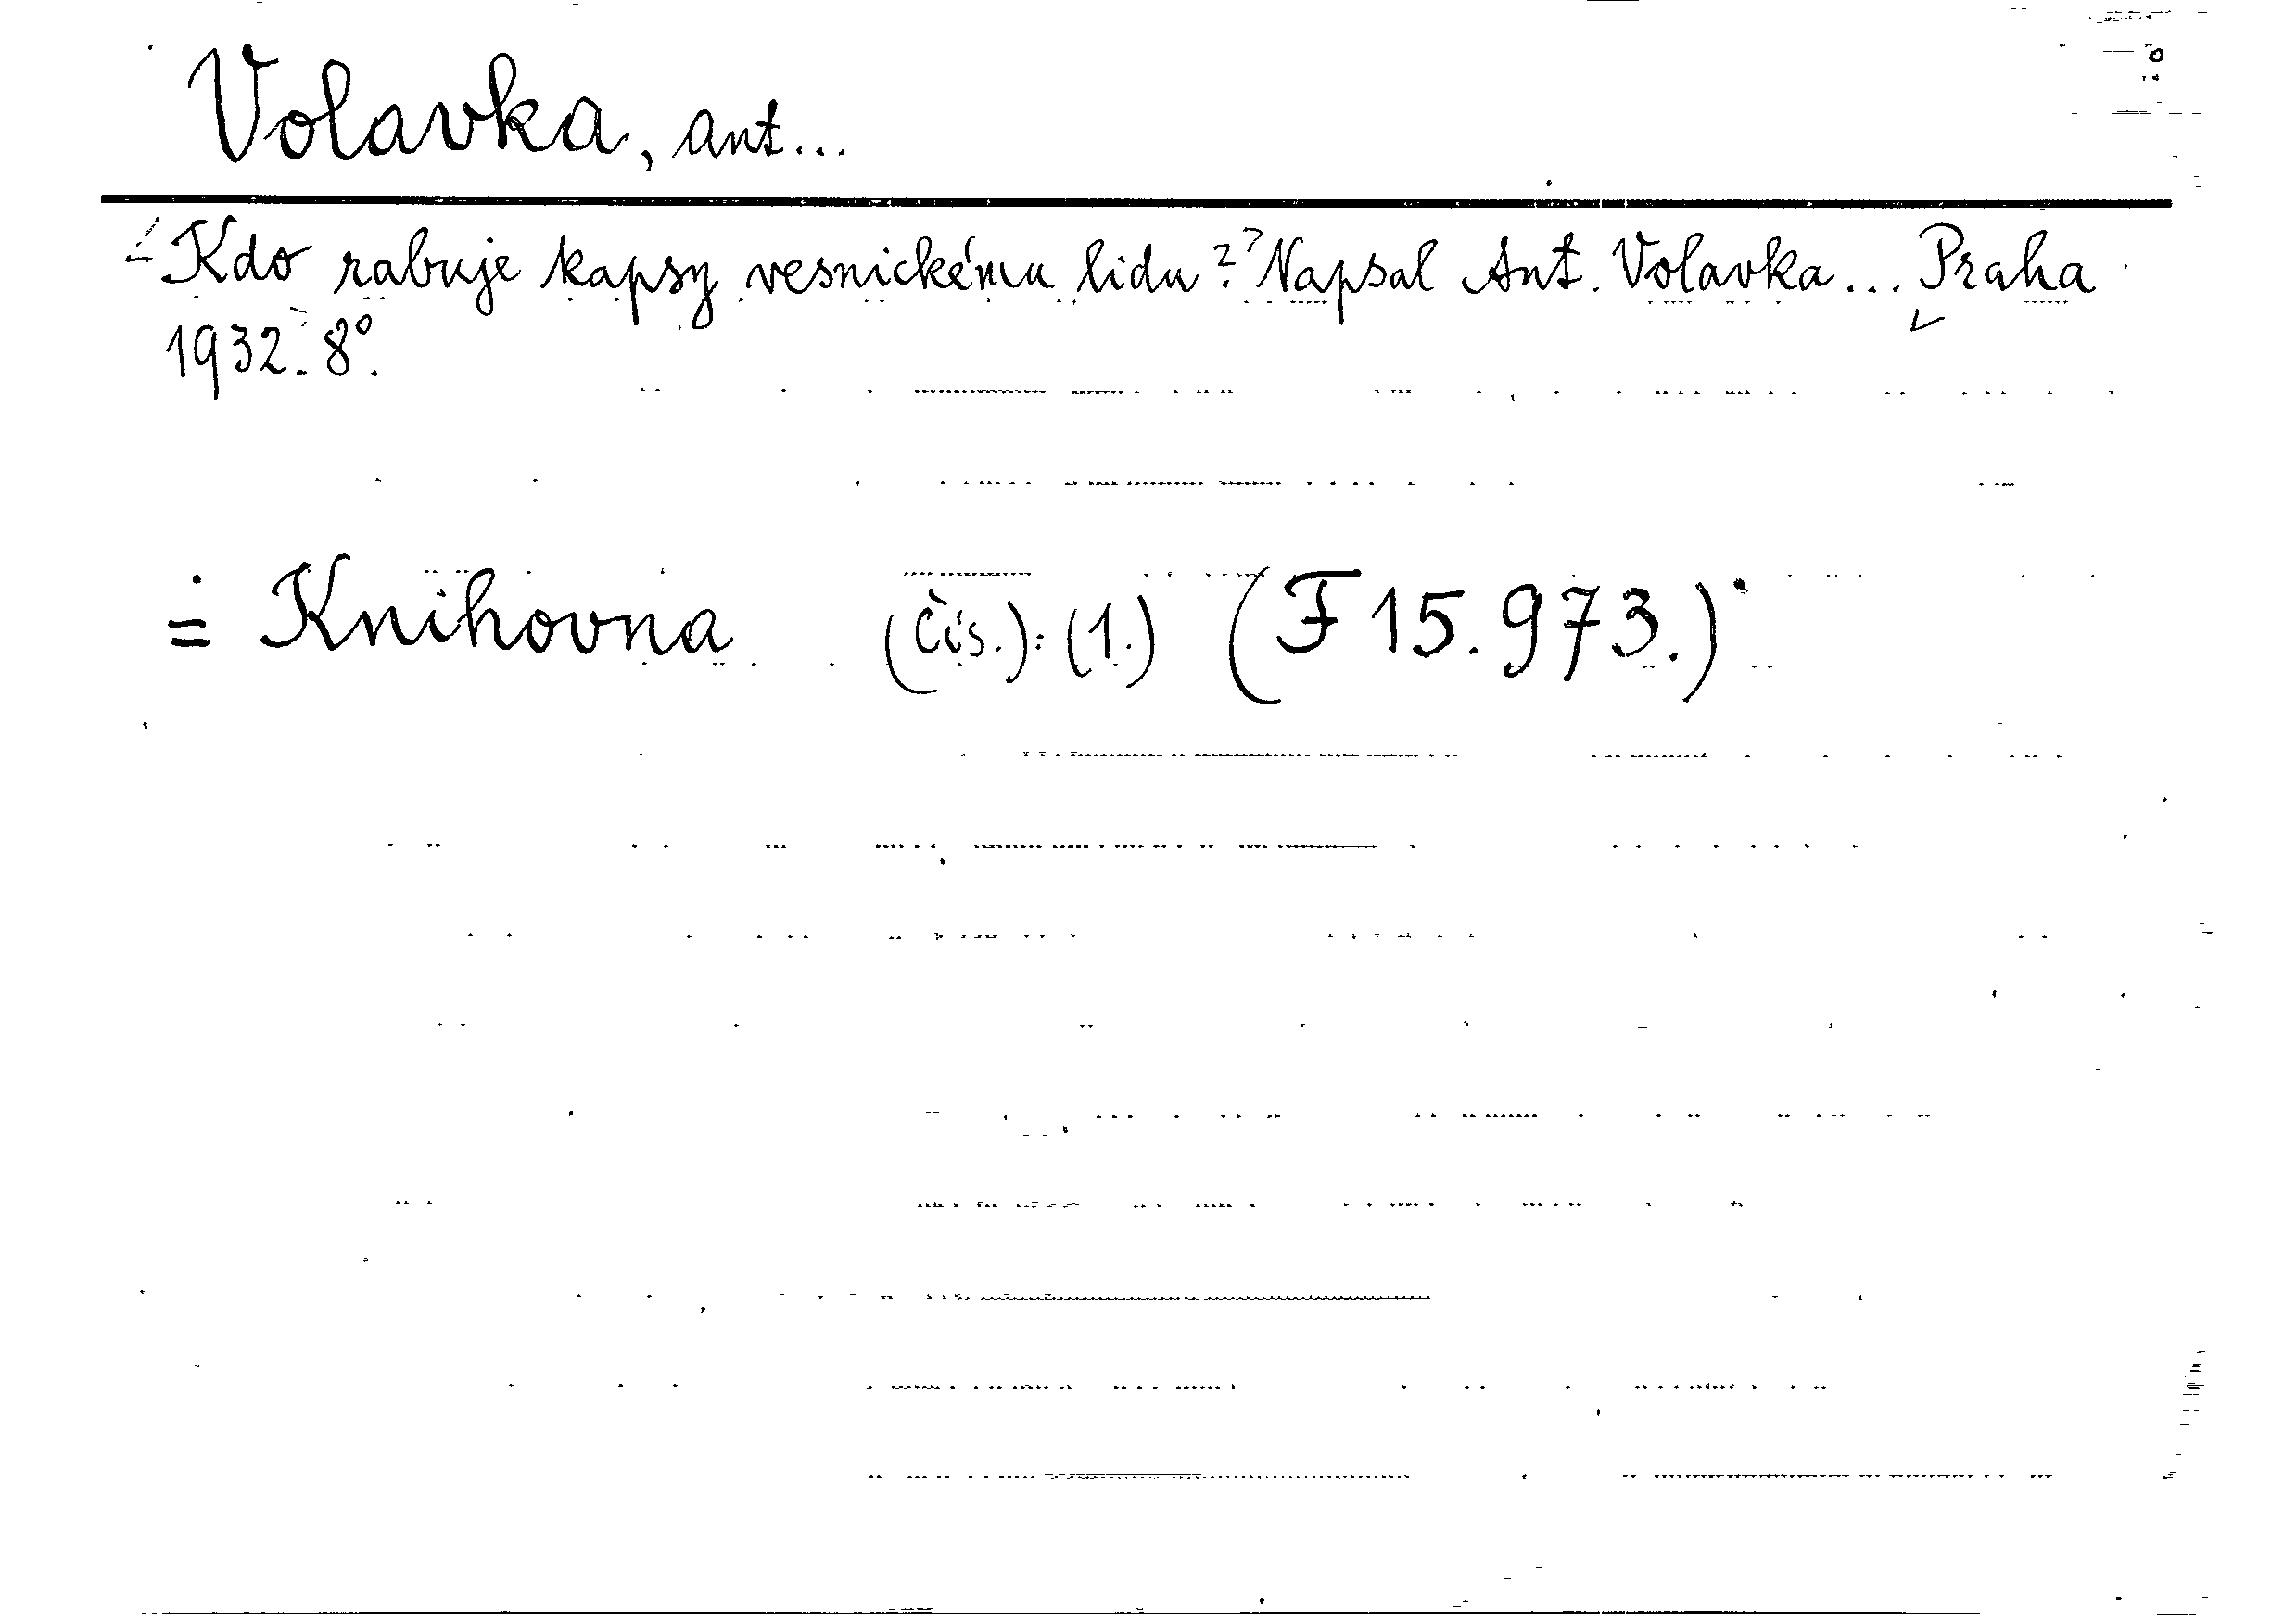 Volavka, Ant...
Kdo rabuje kapsy vesnickému lidu? Napsal Ant. Volavka... Praha
1932. 8°.
= Knihovna (Čís.): (1.) (F 15.973.)